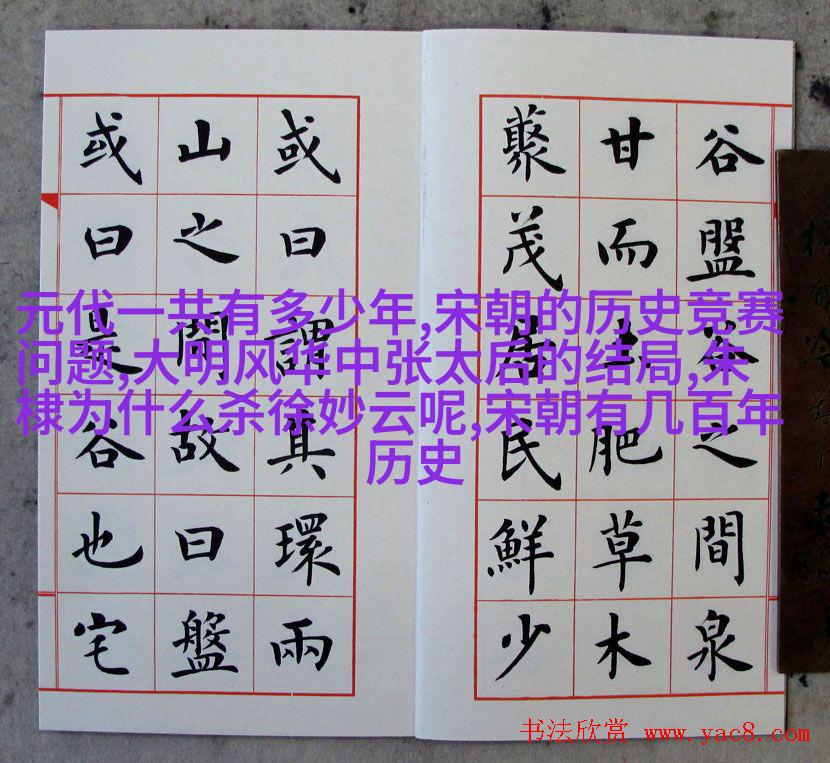 元代一共有多少年,宋朝的历史竞赛
问题,大明风华中张太后的结局,朱
棣为什么杀徐妙云呢,宋朝有几百年
历史
谷盤谷之間泉
甘而土肥草木
藂茂居民鮮少
或曰謂其環兩
山之間故曰盤
或曰是谷也宅
书法欣赏 www.yac8.com